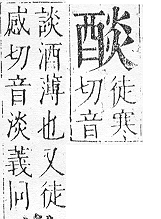 醈
徒寒
切音
談酒薄也又徒
感切音淡義同